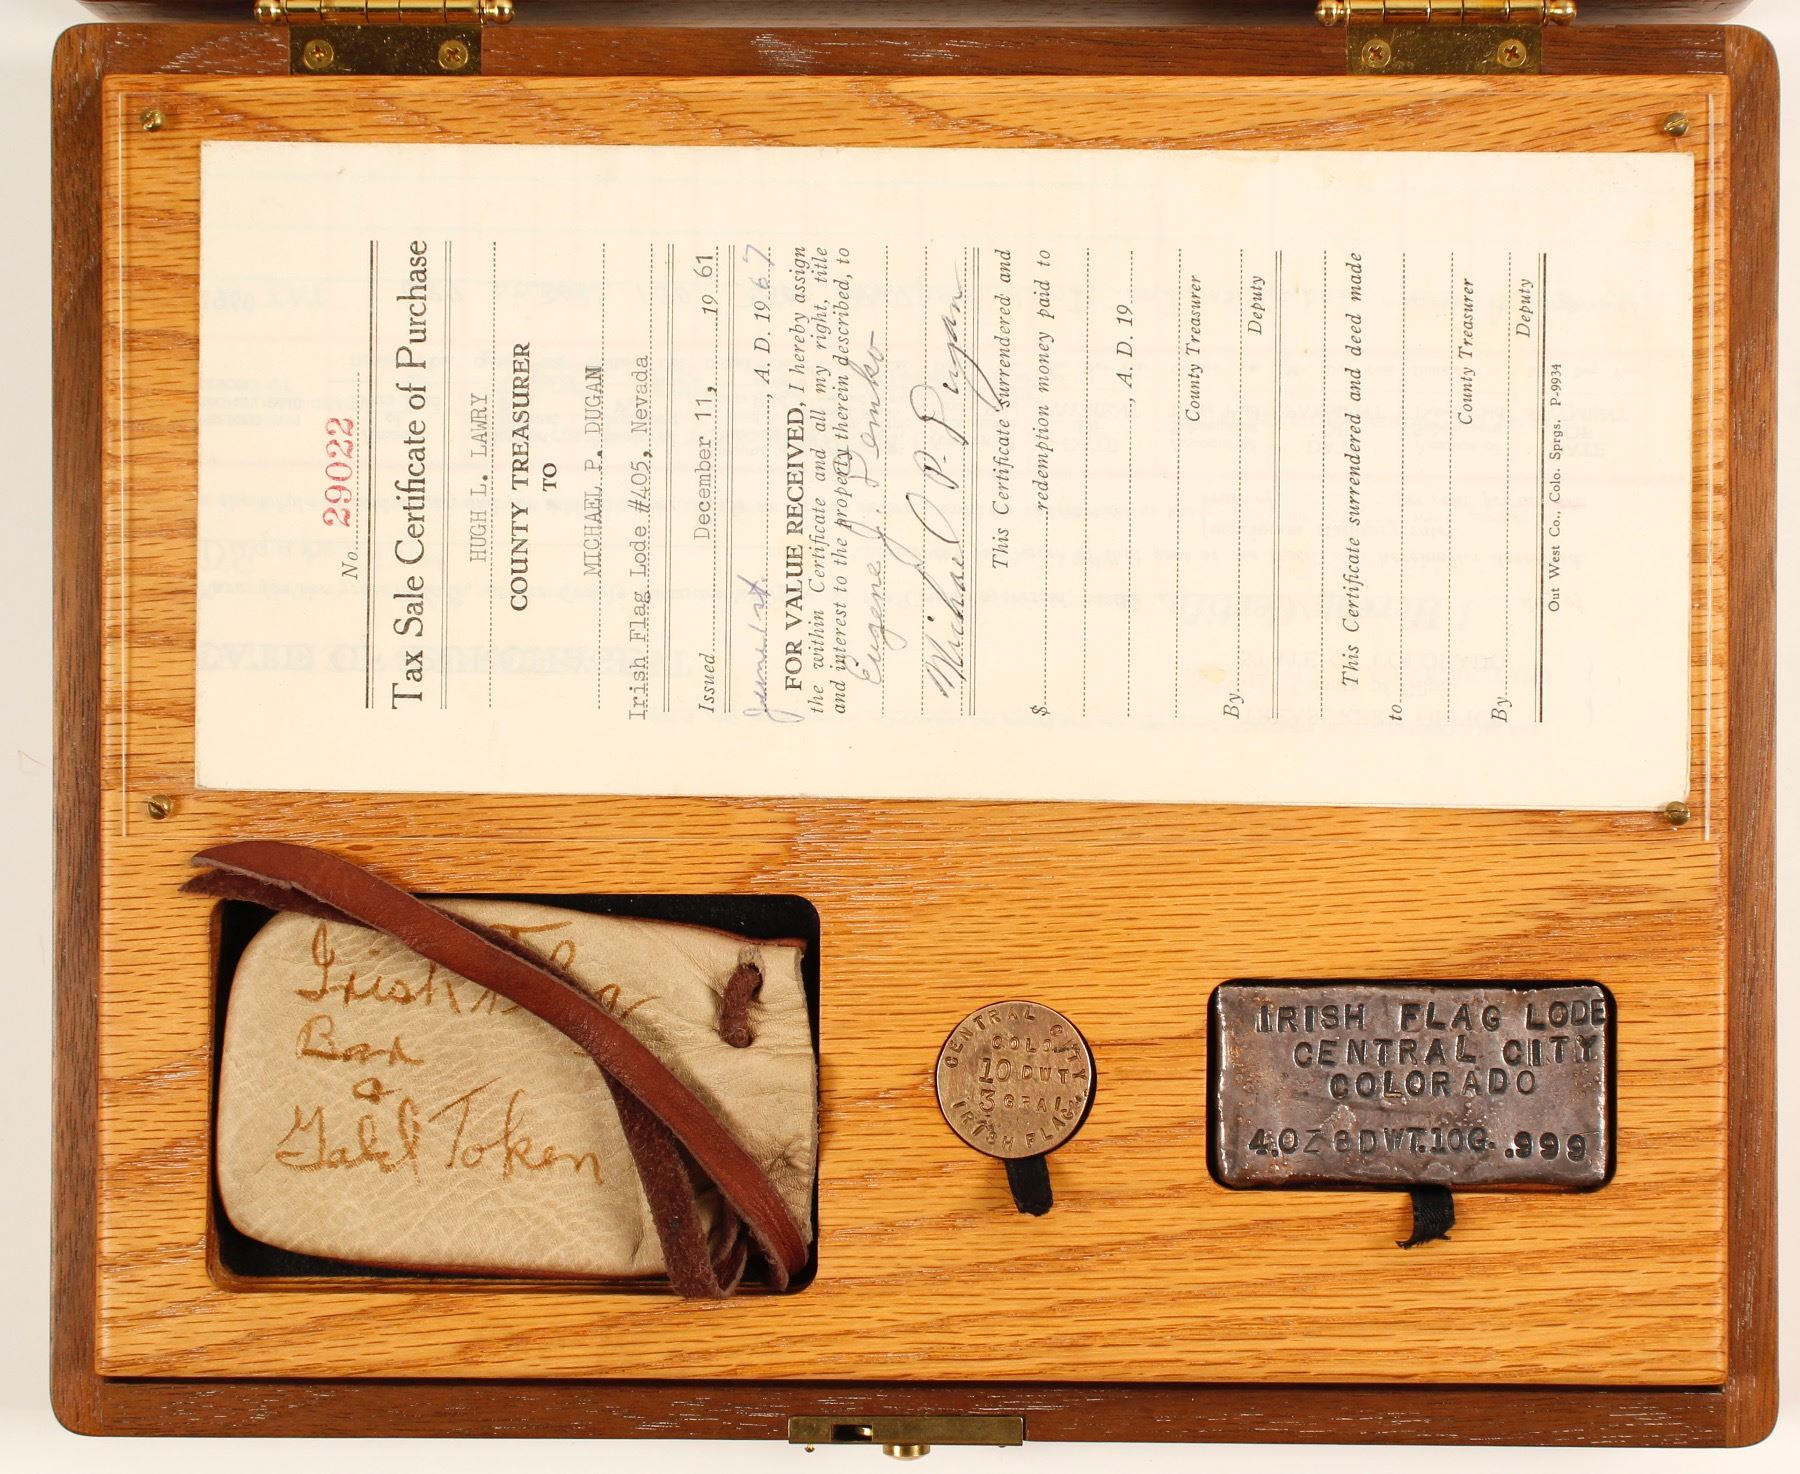 No. 29022
Tax Sale Certificate of Purchase
HUGH L. LAWRY
COUNTY TREASURER
TO
MICHAEL P. DUGAN
Irish Flag Lode #405, Nevada
Issued December 11, 19 61
June 1st, A. D. 1967
FOR VALUE RECEIVED, I hereby assign
the within Certificate and all my right, title
and interest to the property therein described, to
Eugene J.
Michael P. Dugan
This Certificate surrendered and
redemption money paid to
$
, A. D. 19
County Treasurer
By Deputy
This Certificate surrendered and deed made
to
County Treasurer
By Deputy
Out West Co., Colo. Sprgs. P-9934
Irish
Bar
&
Gold Token
CENTRAL CITY
COLO.
10 DWT
3 GRAI
IRISH FLAG
IRISH FLAG LODE
CENTRAL CITY
COLORADO
4.OZ 8DWT.10G. .999